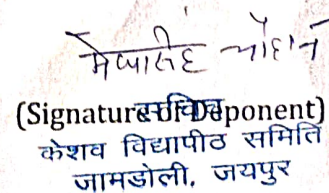 चौहान
(Signature of Deponent)
सचिव
केशव विद्यापीठ समिति
जामडोली, जयपुर